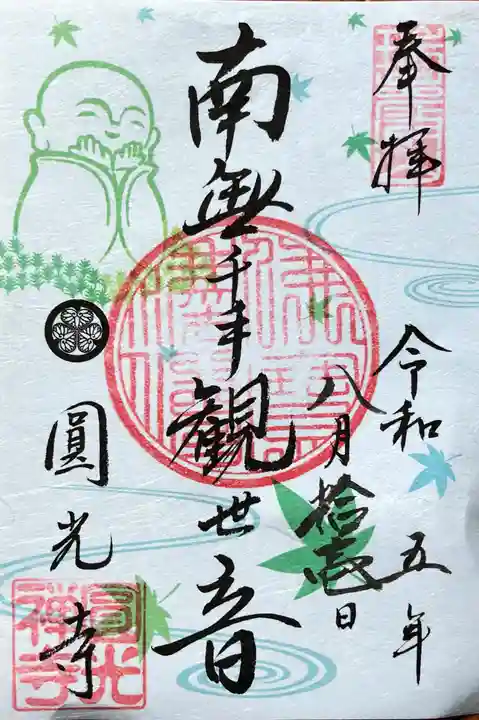 奉拝
令和五年
八月拾壱日
南無千手觀世音
圓光寺
圓光禅寺